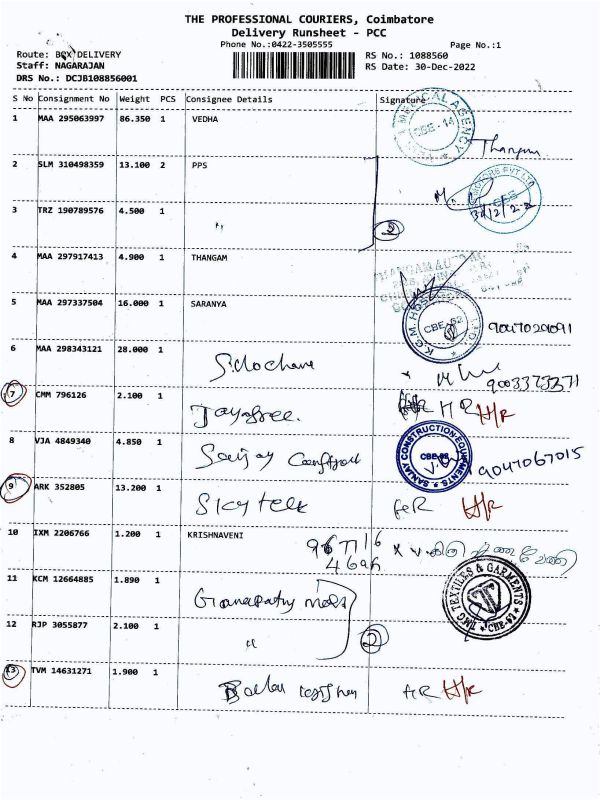 THE PROFESSIONAL COURIERS, Coimbatore
Delivery Runsheet - PCC
Phone No.:0422-3505555
Page No.:1
Route: BOX DELIVERY
RS No.: 1088560
Staff: NAGARAJAN
RS Date: 30-Dec-2022
DRS No.: DCJB108856001
S No Consignment No Weight PCS Consignee Details Signature
1 MAA 295063997 86.350 1 VEDHA
MEDICAL AGENCY CBE-14
Thangam
2 SLM 310498359 13.100 2 PPS
MOTORS PVT LTD CBE
30/12/22
3 TRZ 190789576 4.500 1 "
4 MAA 297917413 4.900 1 THANGAM
5 MAA 297337504 16.000 1 SARANYA
K.G.M. CBE-62
6 MAA 298343121 28.000 1
7 CMM 796126 2.100 1 Jayasree. HR H/R
8 VJA 4849340 4.850 1 Sanjay
SANJAY CONSTRUCTION EQUIPMENTS
9047067015
9 ARK 352805 13.200 1 H/R
10 IXM 2206766 1.200 1 KRISHNAVENI
11 KCM 12664885 1.890 1 Ganapathy
TMG TEXTILES & GARMENTS
12 RJP 3055877 2.100 1 " 2
13 TVM 14631271 1.900 1 H/R